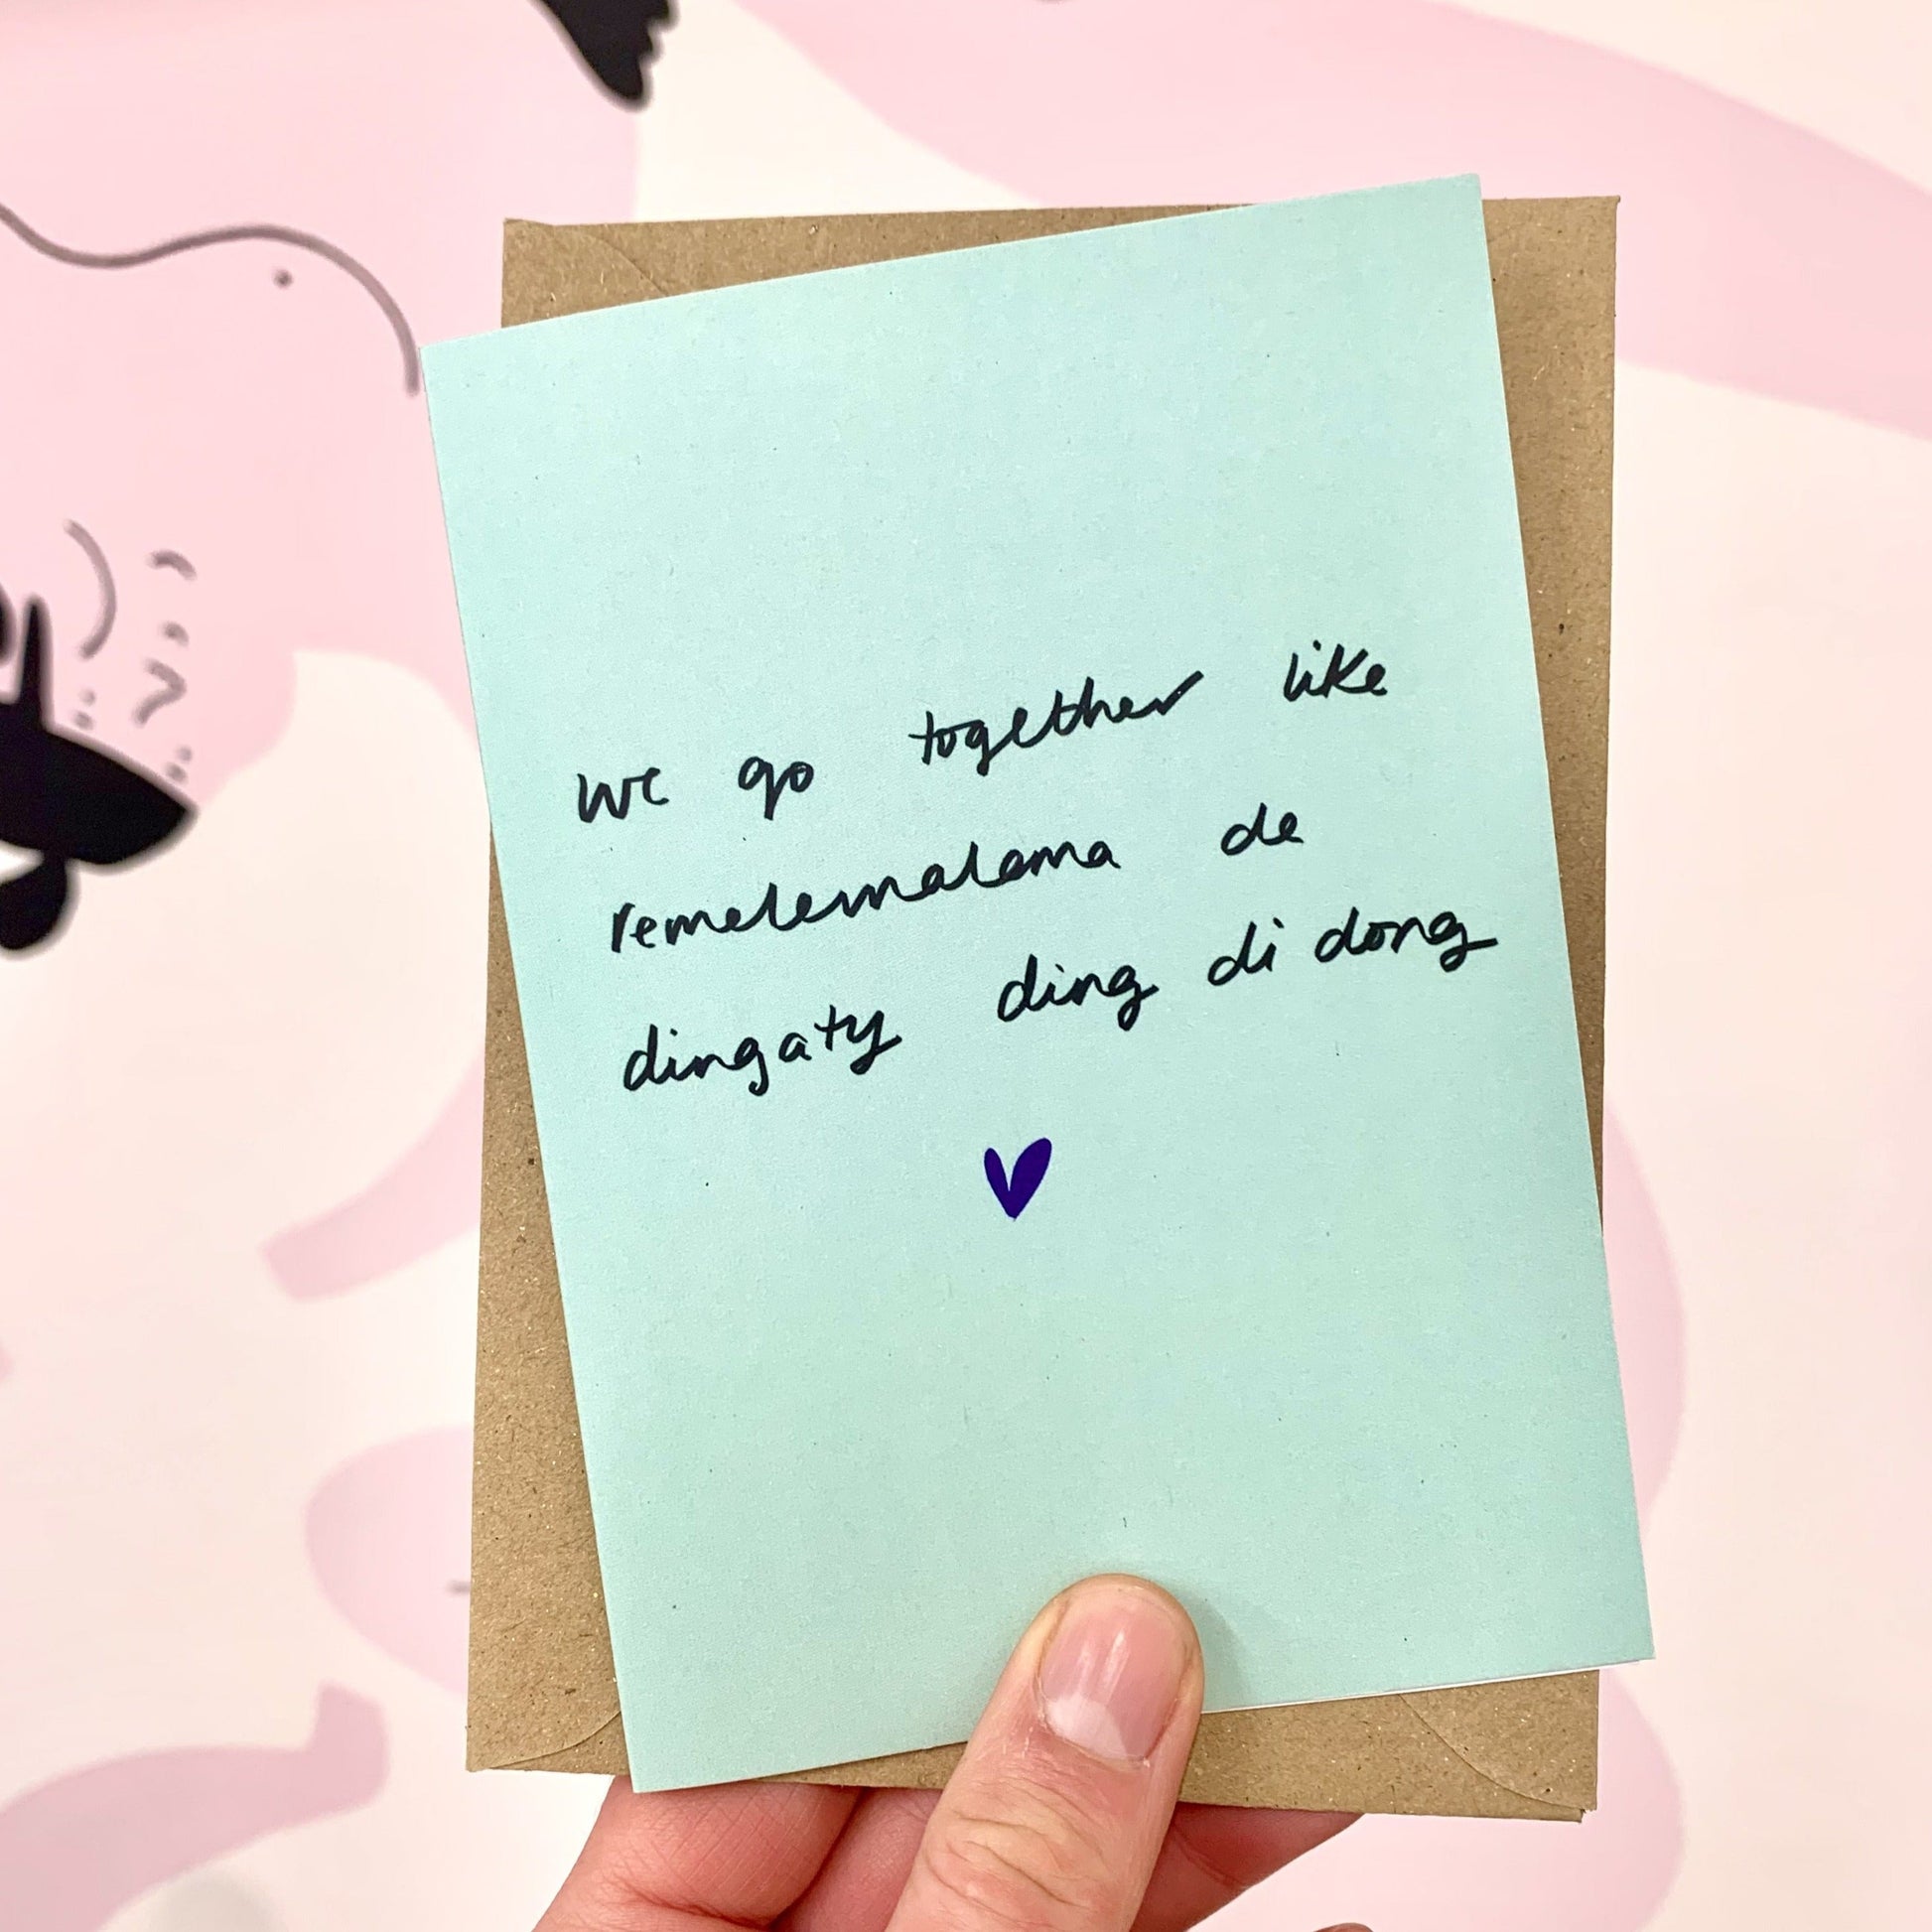 we go together like
remelemalama de
dingaty ding di dong